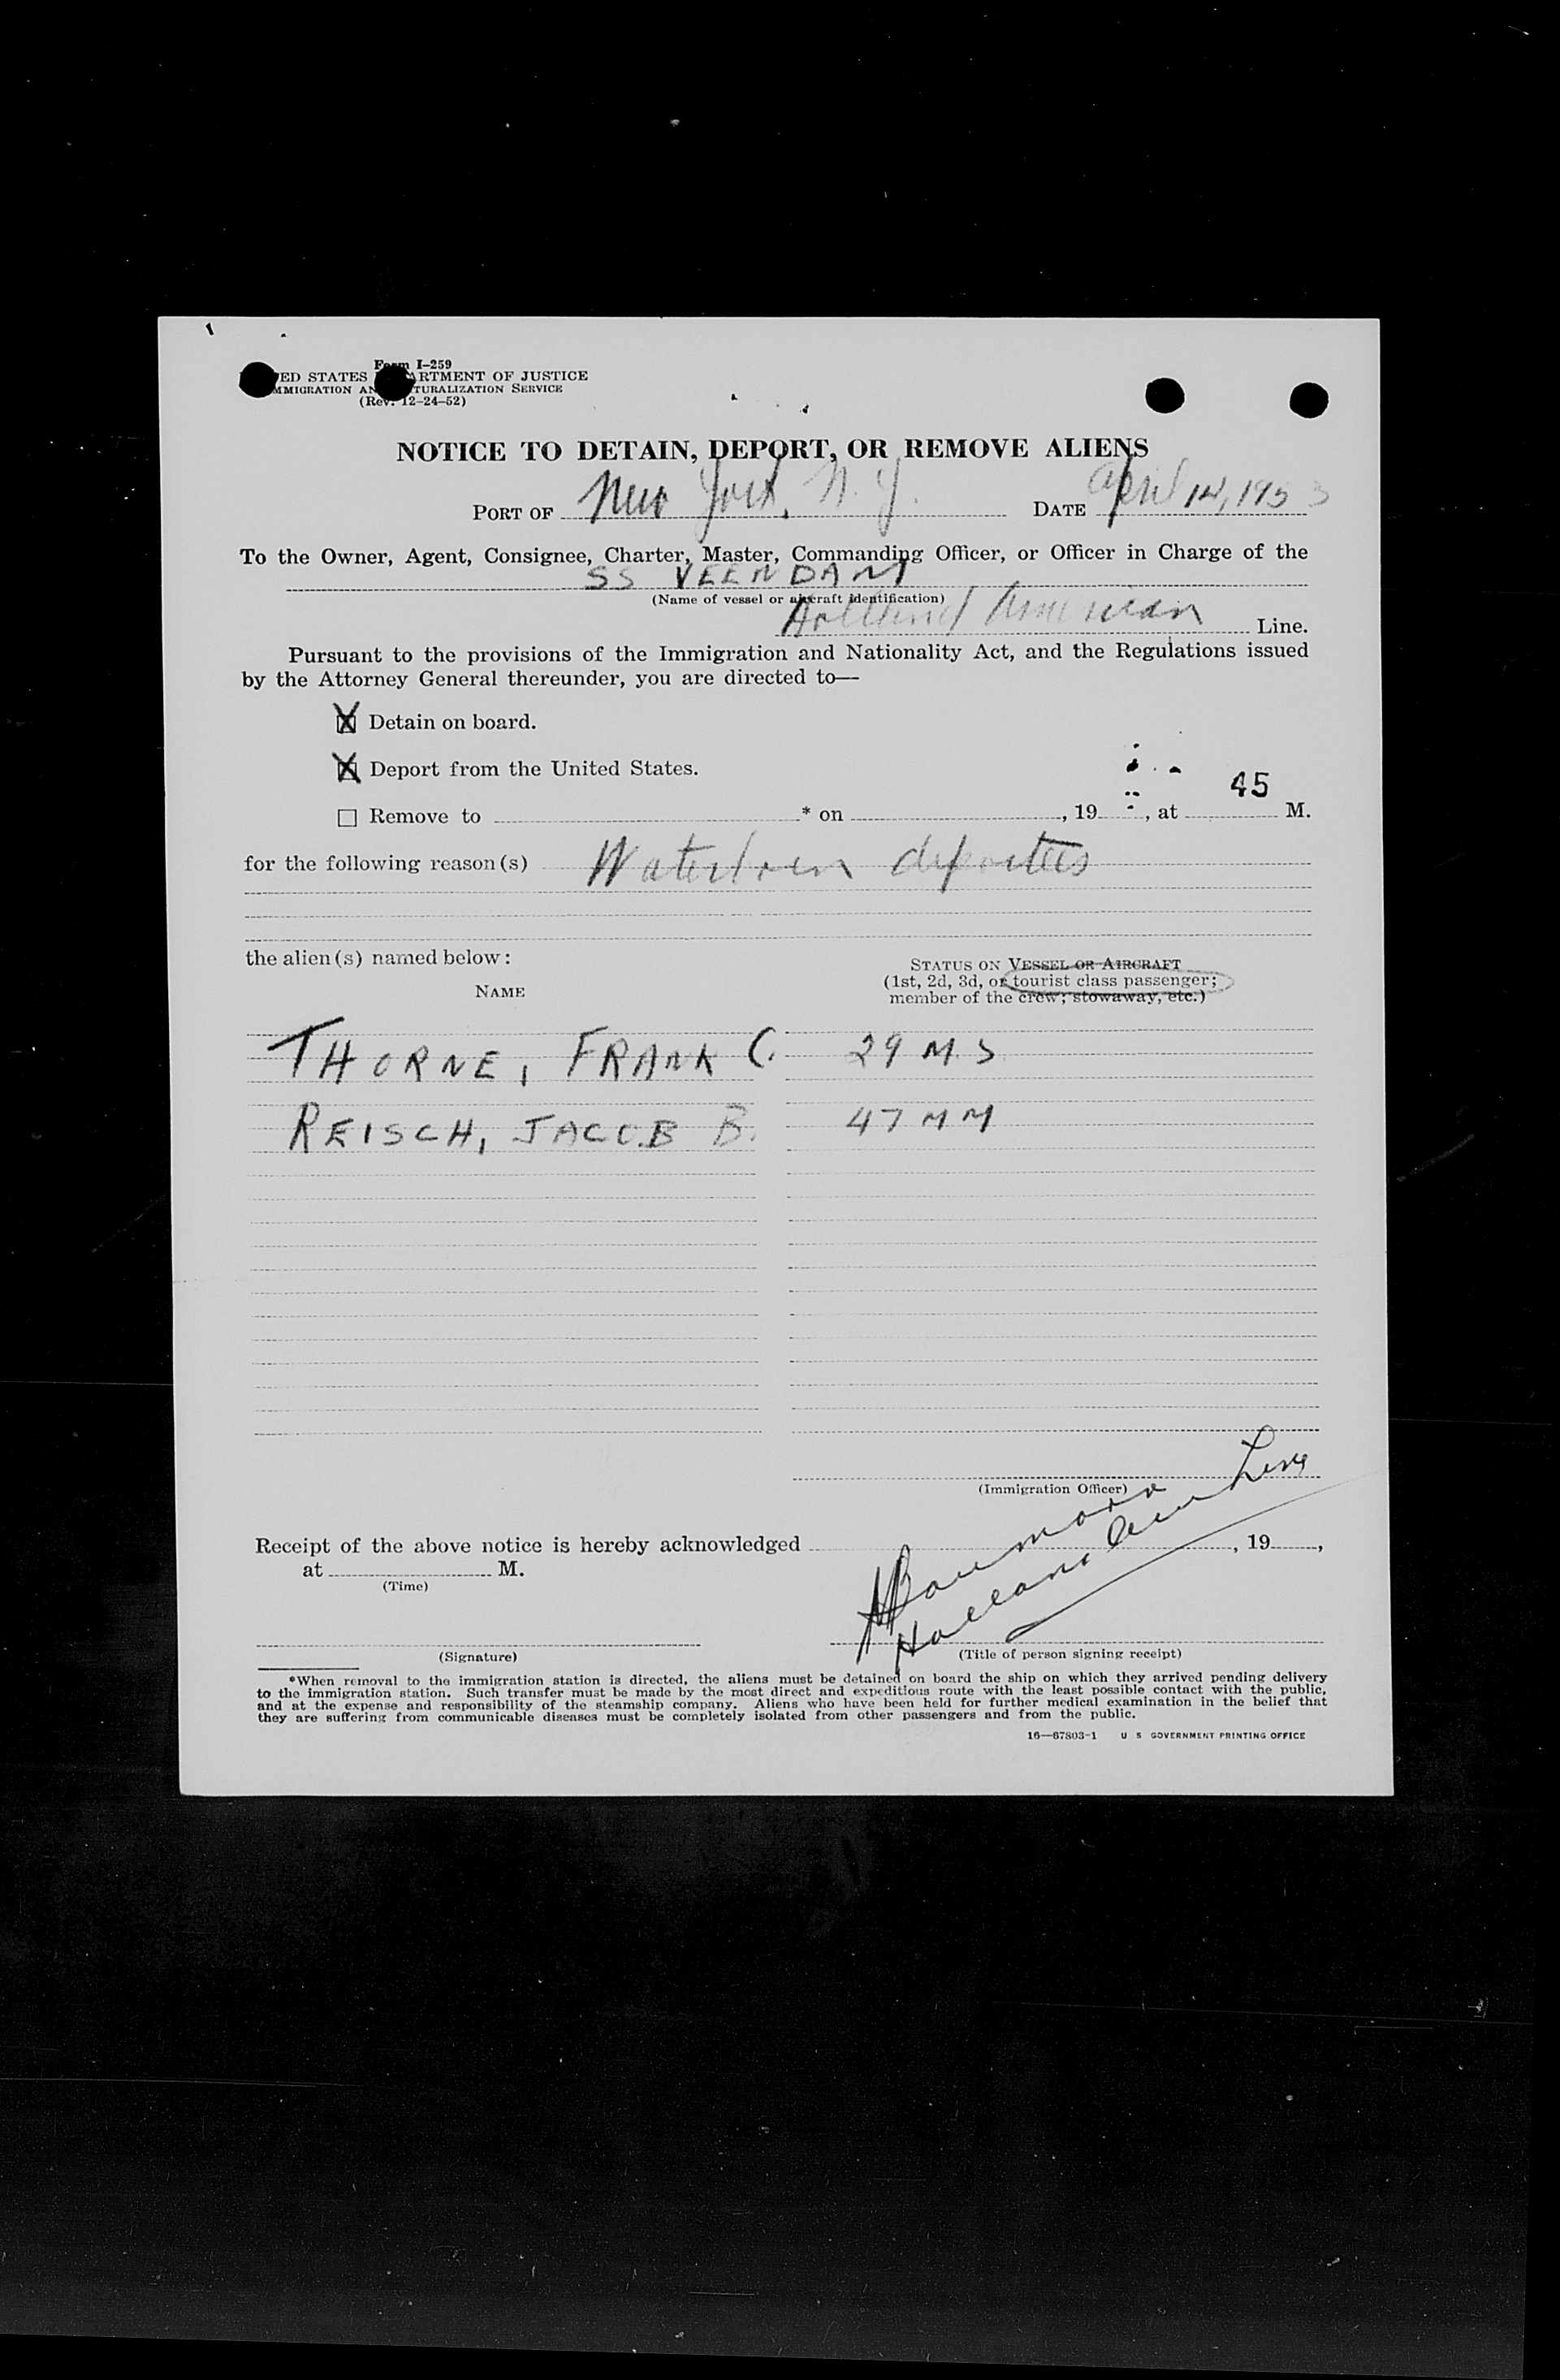 Form I-259
ED STATES RTMENT OF JUSTICE
MMIGRATION AN TURALIZATION SERVICE
(Rev. 12-24-52)
NOTICE TO DETAIN, DEPORT, OR REMOVE ALIENS
PORT OF New York, N. Y. DATE April 14, 1953
To the Owner, Agent, Consignee, Charter, Master, Commanding Officer, or Officer in Charge of the
SS VEENDAM
(Name of vessel or aircraft identification)
Holland American Line.
Pursuant to the provisions of the Immigration and Nationality Act, and the Regulations issued
by the Attorney General thereunder, you are directed to—
X Detain on board.
X Deport from the United States.
45
☐ Remove to * on , 19 , at M.
for the following reason(s) deportees
the alien(s) named below:
STATUS ON VESSEL OR AIRCRAFT
(1st, 2d, 3d, or tourist class passenger;
member of the crew; stowaway, etc.)
NAME
THORNE, FRANK C. 29 M. S
REISCH, JACOB B. 47 M M
(Immigration Officer)
Receipt of the above notice is hereby acknowledged , 19 ,
at M.
(Time)
Holland Amer Line
(Signature) (Title of person signing receipt)
*When removal to the immigration station is directed, the aliens must be detained on board the ship on which they arrived pending delivery
to the immigration station. Such transfer must be made by the most direct and expeditious route with the least possible contact with the public,
and at the expense and responsibility of the steamship company. Aliens who have been held for further medical examination in the belief that
they are suffering from communicable diseases must be completely isolated from other passengers and from the public.
16—67803-1 U S GOVERNMENT PRINTING OFFICE